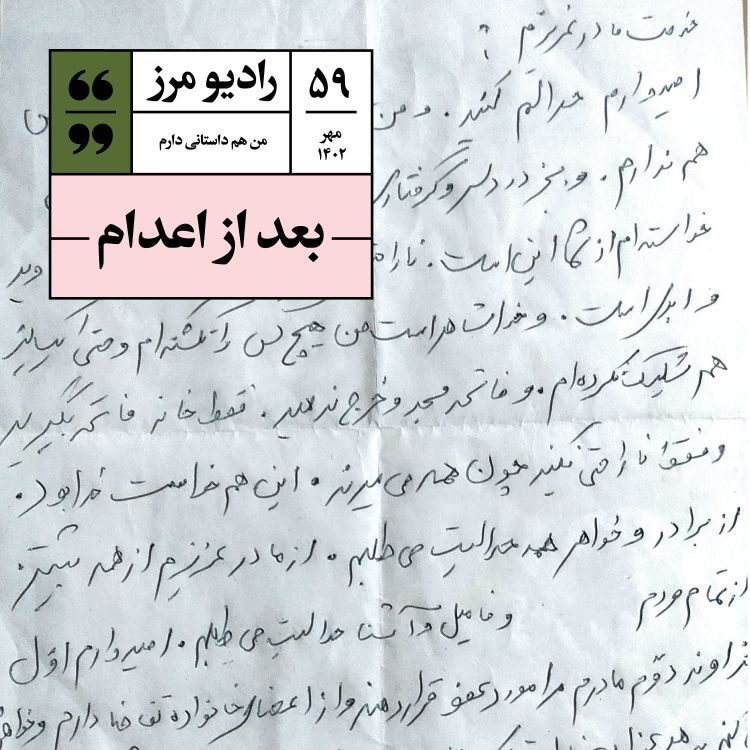 رادیو مرز
من هم داستانی دارم
۵۹
مهر
۱۴۰۲
بعد از اعدام
خدمت مادر عزیزم
امیدوارم حلالم کنید. و من
هم ندارم. و بجز دردسر و گرفتاری
خواسته‌ام از شما این است. ناراحتی
و ابدی است. و خدا شاهد است من هیچ کس را نکشته‌ام و حتی
هم شلیک نکرده‌ام. و فاتحه مسجد و خرج ندهید. فقط خانه فاتحه بگیرید
و فقط ناراحتی نکنید چون همه می‌میرند. این هم خواست خدا بود.
از برادر و خواهر همه حلالیت می‌طلبم. از مادر عزیزم از همه بیشتر.
از تمام مردم و فامیل و آشنا حلالیت می‌طلبم. امیدوارم اول
خداوند دوم مادرم مرا مورد عفو قرار دهند و از اعضای خانواده تقاضا دارم